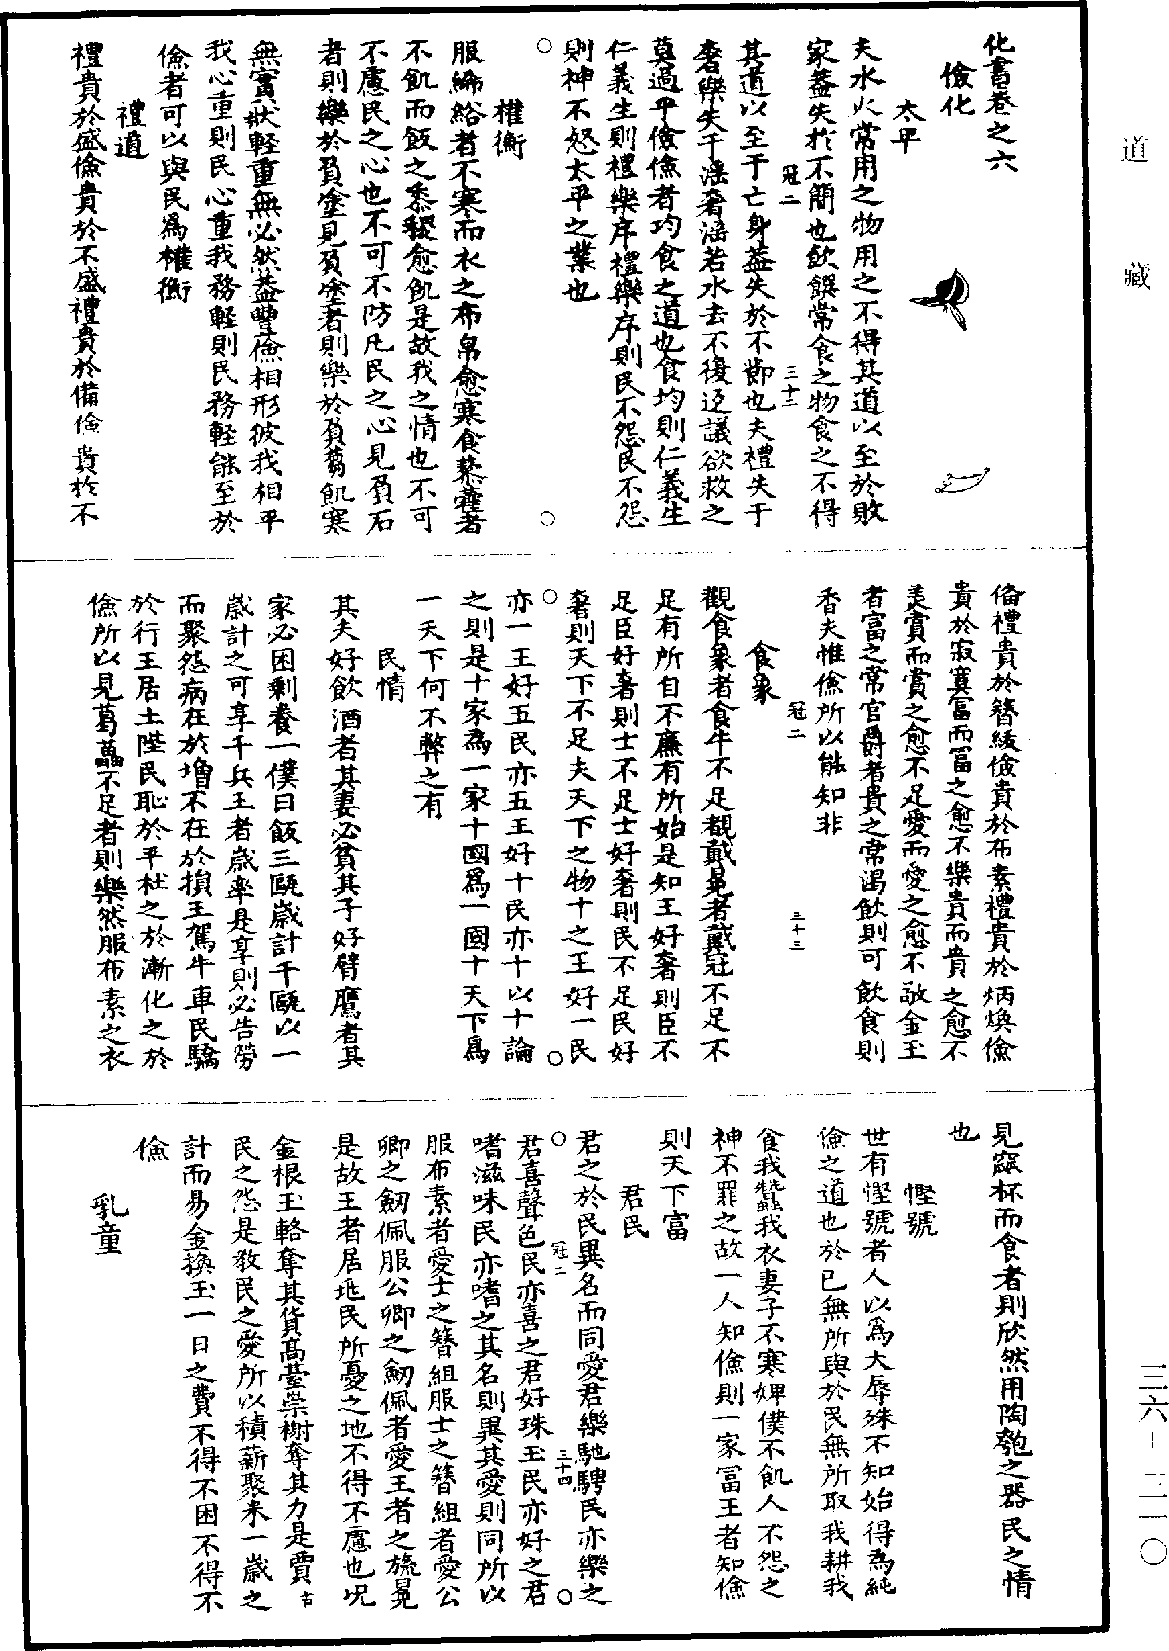 化書卷之六
儉化
太平
夫水火常用之物用之不得其道以至於敗
家蓋失於不簡也飲饌常食之物食之不得
冠二
三十二
其道以至于亡身蓋失於不節也夫禮失于
奢樂失于淫奢淫若水去不復返議欲救之
莫過乎儉儉者均食之道也食均則仁義生
仁義生則禮樂序禮樂序則民不怨民不怨
則神不怒太平之業也
權衡
服絺綌者不寒而衣之布帛愈寒食藜藿者
不飢而飯之黍稷愈飢是故我之情也不可
不慮民之心也不可不防凡民之心見負石
者則樂於負塗見負塗者則樂於負芻飢寒
無實狀輕重無必然蓋豐儉相形彼我相平
我心重則民心重我務輕則民務輕能至於
儉者可以與民爲權衡
禮道
禮貴於盛儉貴於不盛禮貴於備儉貴於不
備禮貴於簪紱儉貴於布素禮貴於炳煥儉
貴於寂寞富而富之愈不樂貴而貴之愈不
美賞而賞之愈不足愛而愛之愈不敬金玉
者富之常官爵者貴之常渴飲則可飲食則
香夫惟儉所以能知非
冠二
三十三
食象
觀食象者食牛不足覩戴冕者戴冠不足不
足有所自不廉有所始是知王好奢則臣不
足臣好奢則士不足士好奢則民不足民好
奢則天下不足夫天下之物十之王好一民
亦一王好五民亦五王好十民亦十以十論
之則是十家爲一家十國爲一國十天下爲
一天下何不弊之有
民情
其夫好飲酒者其妻必貧其子好臂鷹者其
家必困剩養一僕日飯三甌歲計千甌以一
歲計之可享千兵王者歲率是享則必告勞
而聚怨病在於增不在於損王駕牛車民驕
於行王居土陛民恥於平杜之於漸化之於
儉所以見葛藟不足者則樂然服布素之衣
見窳杯而食者則欣然用陶匏之器民之情
也
慳號
世有慳號者人以爲大辱殊不知始得爲純
儉之道也於己無所與於民無所取我耕我
食我蠶我衣妻子不寒婢僕不飢人不怨之
神不罪之故一人知儉則一家富王者知儉
則天下富
君民
君之於民異名而同愛君樂馳騁民亦樂之
冠二
三十四
君喜聲色民亦喜之君好珠玉民亦好之君
嗜滋味民亦嗜之其名則異其愛則同所以
服布素者愛士之簪組服士之簪組者愛公
卿之劒佩服公卿之劒佩者愛王者之旒冕
是故王者居兆民所憂之地不得不慮也况
金根玉輅奪其貨高臺崇榭奪其力是賈
民之怨是教民之愛所以積薪聚米一歲之
計而易金換玉一日之費不得不困不得不
儉
乳童
道藏
三六-三一〇